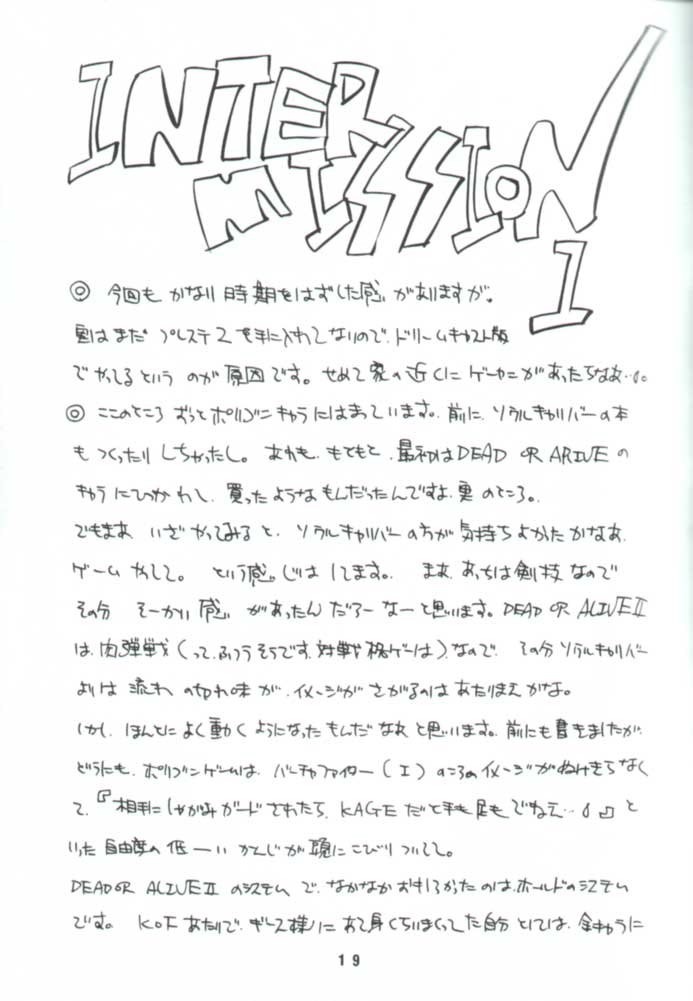 INTER
MISSION
I
◎ 今回も かなり 時期をはずした感じがありますが。
実はまだ プレステ2を手に入れてないので、ドリームキャスト版
でやってるという のが 原因です。せめて家の近くに ゲーセンがあったらなぁ…。
◎ ここのところ ずっとポリゴンキャラにはまっています。前に、ソウルキャリバーの本
も つくったり しちゃったし。あれも、もともと、最初はDEAD OR ARIVE の
キャラ にひっかかれし、買ったようなもんだったんですよ、実のところ。
でもまぁ いざ やってみると、ソウルキャリバーの方が気持ちよかったかなぁ、
ゲームやってて。という感じはしてます。まぁ、あっちは剣技なので
その分 そーかい感が があったんだろーなーと思います。DEAD OR ALIVE II
は、肉弾戦(って、ふつうそうです、対戦格ゲーは)なので、その分ソウルキャリバー
よりは 流れ の切れ味が、イメージがさがるのはあたりまえかな。
しかし、ほんとによく動くようになったもんだなぁと思います。前にも書きましたが、
どうにも、ポリゴンゲームは、バーチャファイター(I)のころのイメージがぬけきらなく
て、『相手にしゃがみガードされたら、KAGEだと手も足もでねえ…』と
いった 自由度の低ーい かんじが頭にこびりついてて。
DEAD OR ALIVE II のシステムで、なかなかおもしろかったのは、ホールドのシステム
です。KOFあたりで、ギース様に あて身くらいまくってた自分としては、全キャラに
19